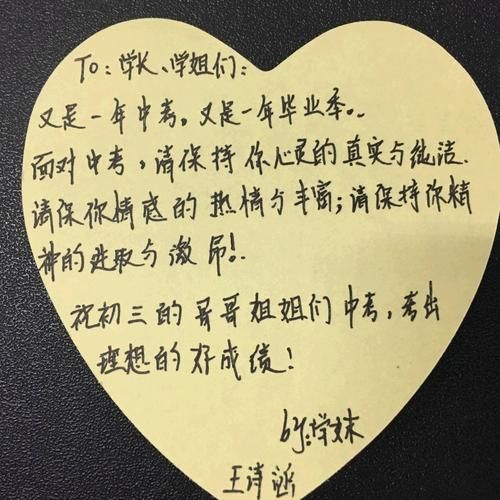 To: 学长、学姐们:
又是一年中考,又是一年毕业季。.
面对中考,请保持你心灵的真实与纯洁.
请保你情感的热情与丰富;请保持你精
神的进取与激昂!.
祝初三的哥哥姐姐们中考,考出
理想的好成绩!
by:学妹
王诗涵